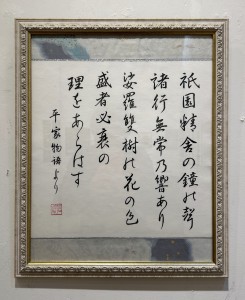 祇園精舎の鐘の聲
諸行無常乃響あり
娑羅雙樹の花の色
盛者必衰の
理をあらはす
平家物語より